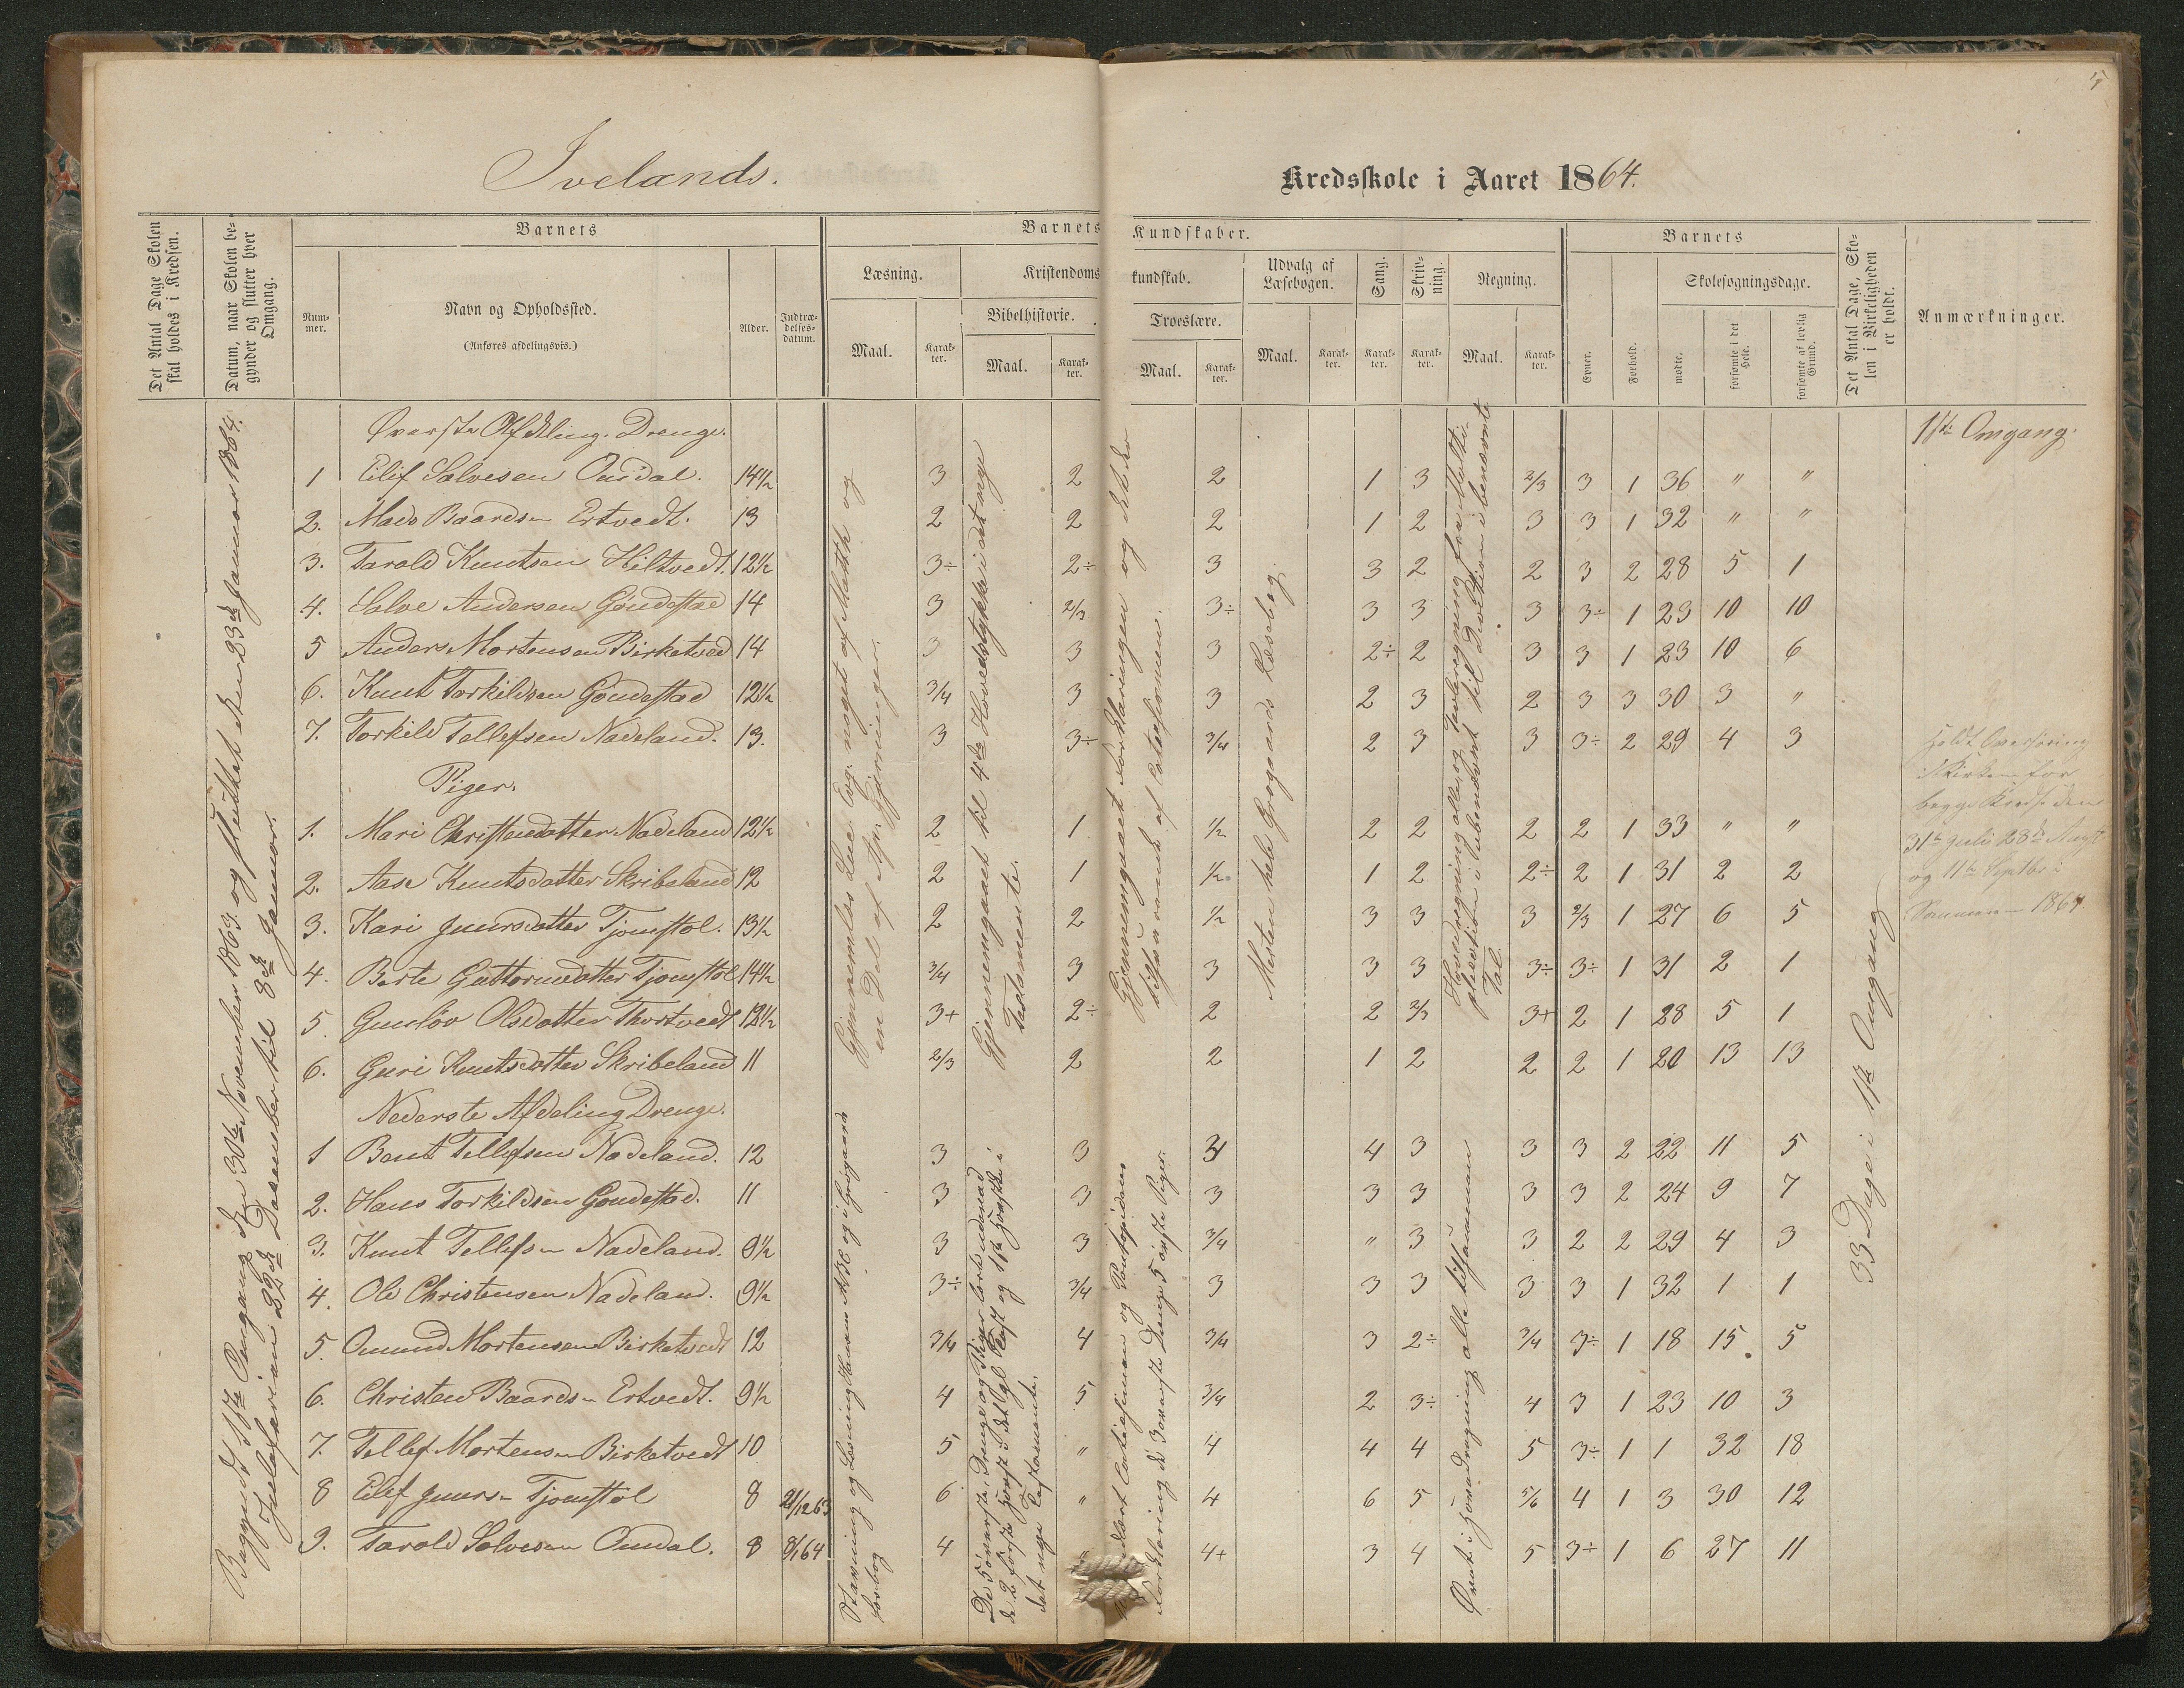 5
Ivelands.
Kredsskole i Aaret 1864.
Det Antal Dage Skolen skal holdes i Kredsen.
Datum, naar Skolen begynder og slutter hver Omgang.
Barnets
Nummer.
Navn og Opholdssted.
(Anføres afdelingsvis.)
Alder.
Indtrædelsesdatum.
Barnets Kundskaber.
Læsning.
Maal.
Karakter.
Kristendomskundskab.
Bibelhistorie.
Maal.
Karakter.
Troeslære.
Maal.
Karakter.
Udvalg af Læsebogen.
Maal.
Karakter.
Sang.
Karakter.
Skrivning.
Karakter.
Regning.
Maal.
Karakter.
Barnets
Evner.
Forhold.
Skolesøgningsdage.
mødte.
forsømte i det Hele.
forsømte af lovlig Grund.
Det Antal Dage, Skolen i Virkeligheden er holdt.
Anmærkninger.
Begyndt 1ste Omgang den 30te November 1863 og sluttet den 23de Januar 1864.
Juleferien 22de December til 8de Januar.
Øverste Afdeling. Drenge.
1ste Omgang.
1 Eilif Salvesen Omdal. 14½ 3 2 2 1 3 2/3 3 1 36 " "
2. Mads Baardsen Ertvedt. 13 2 2 2 1 2 3 3 1 32 " "
3. Tarald Knutsen Hiltvedt. 12½ 3÷ 2÷ 3 3 2 2 3 2 28 5 1
4. Salve Andersen Gøndestad 14 3 2/3 3÷ 3 3 3 3÷ 1 23 10 10
5 Anders Mortensen Birketved 14 3 3 3 2÷ 2 3 3 1 23 10 6
6. Knut Torkildsen Gøndestad 12½ 3/4 3 3 2 3 2 3 3 30 3 "
7. Torkild Tellefsen Nadeland. 13. 3 3÷ 3/4 2 3 3 3÷ 2 29 4 3
Piger.
1. Mari Christensdatter Nadeland 12½ 2 1 1/2 2 2 2 2 1 33 " "
2. Aase Knutsdatter Skribeland 12 2 1 1/2 1 2 2÷ 2 1 31 2 2
3. Kari Gunersdatter Tjomstøl. 13½ 2 2 1/2 3 3 3 2/3 1 27 6 5
4. Berte Guttormsdatter Tjomstøl 14½ 3/4 3 3 3 3 3÷ 3÷ 1 31 2 1
5. Gunløv Olsdatter Thortvedt 12½ 3+ 2÷ 2 2 2/3 3+ 2 1 28 5 1
6. Guri Knutsdatter Skribeland 11 2/3 2 2 1 2 2 2 1 20 13 13
Nederste Afdeling Drenge.
1 Bent Tellefsen Nadeland. 12 3 3 3 4 3 3 3 2 22 11 5
2. Hans Torkildsen Gøndestad. 11 3 3 3 3 3 3 3 2 24 9 7
3. Knut Tellefsen Nadeland. 9½ 3 3 3/4 " 3 3 2 2 29 4 3
4. Ole Christensen Nadeland. 9½ 3÷ 3/4 3 3 3 3 3 1 32 1 1
5. Omund Mortensen Birketvedt 12 3/4 4 3/4 3 2÷ 3/4 3÷ 1 18 15 5
6. Christen Baardsen Ertvedt. 9½ 4 5 3/4 2 3÷ 4 3 1 23 10 3
7. Tellef Mortensen Birketvedt 10 5 " 4 4 4 5 3÷ 1 1 32 18
8 Eilef Gunersen Tjomstøl 8 21/12 63 6 " 4 6 5 5/6 4 1 3 30 12
9. Tarald Salvesen Omdal. 8 8/1 64 4 " 4+ 3 4 5 3÷ 1 6 27 11
Gjennemlæs Luc. Evg. noget af Matth. og
en Del af Ap. Gjerninger.
Stavning og Læsning Hansens ABC og i Grøgaards
Læsbog
Gjennemgaaet til 4de Hovedstykke i det nye
Testamente.
De 5 øverste Drenge og Piger lært udenad
de 2 første
det nye Testamente.
Gjennemgaaet Forklaringen og
af Catechismen.
Forklaring, de 3 øverste Drenge, 5 øverste Piger.
Mesten hele Grøgaards Læsebog.
Hovedregning alle, og Tavleregning fra Multiplication
i ubenævnt til Division i benævnte
Tal.
Øvet i Hovedregning alle tilsammen
33 Dage i 1ste Omgang
Holdt Overhøring
i Kirken for
begge Kredse den
31te Juli 28de Augst
og 11te Septbr i
Sommeren 1864